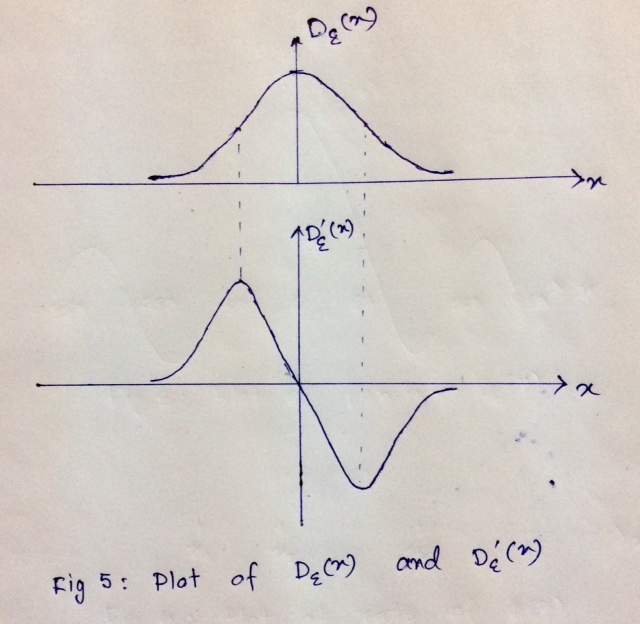 Dε(x)
x
Dε′(x)
x
Fig 5: Plot of Dε(x) and Dε′(x)